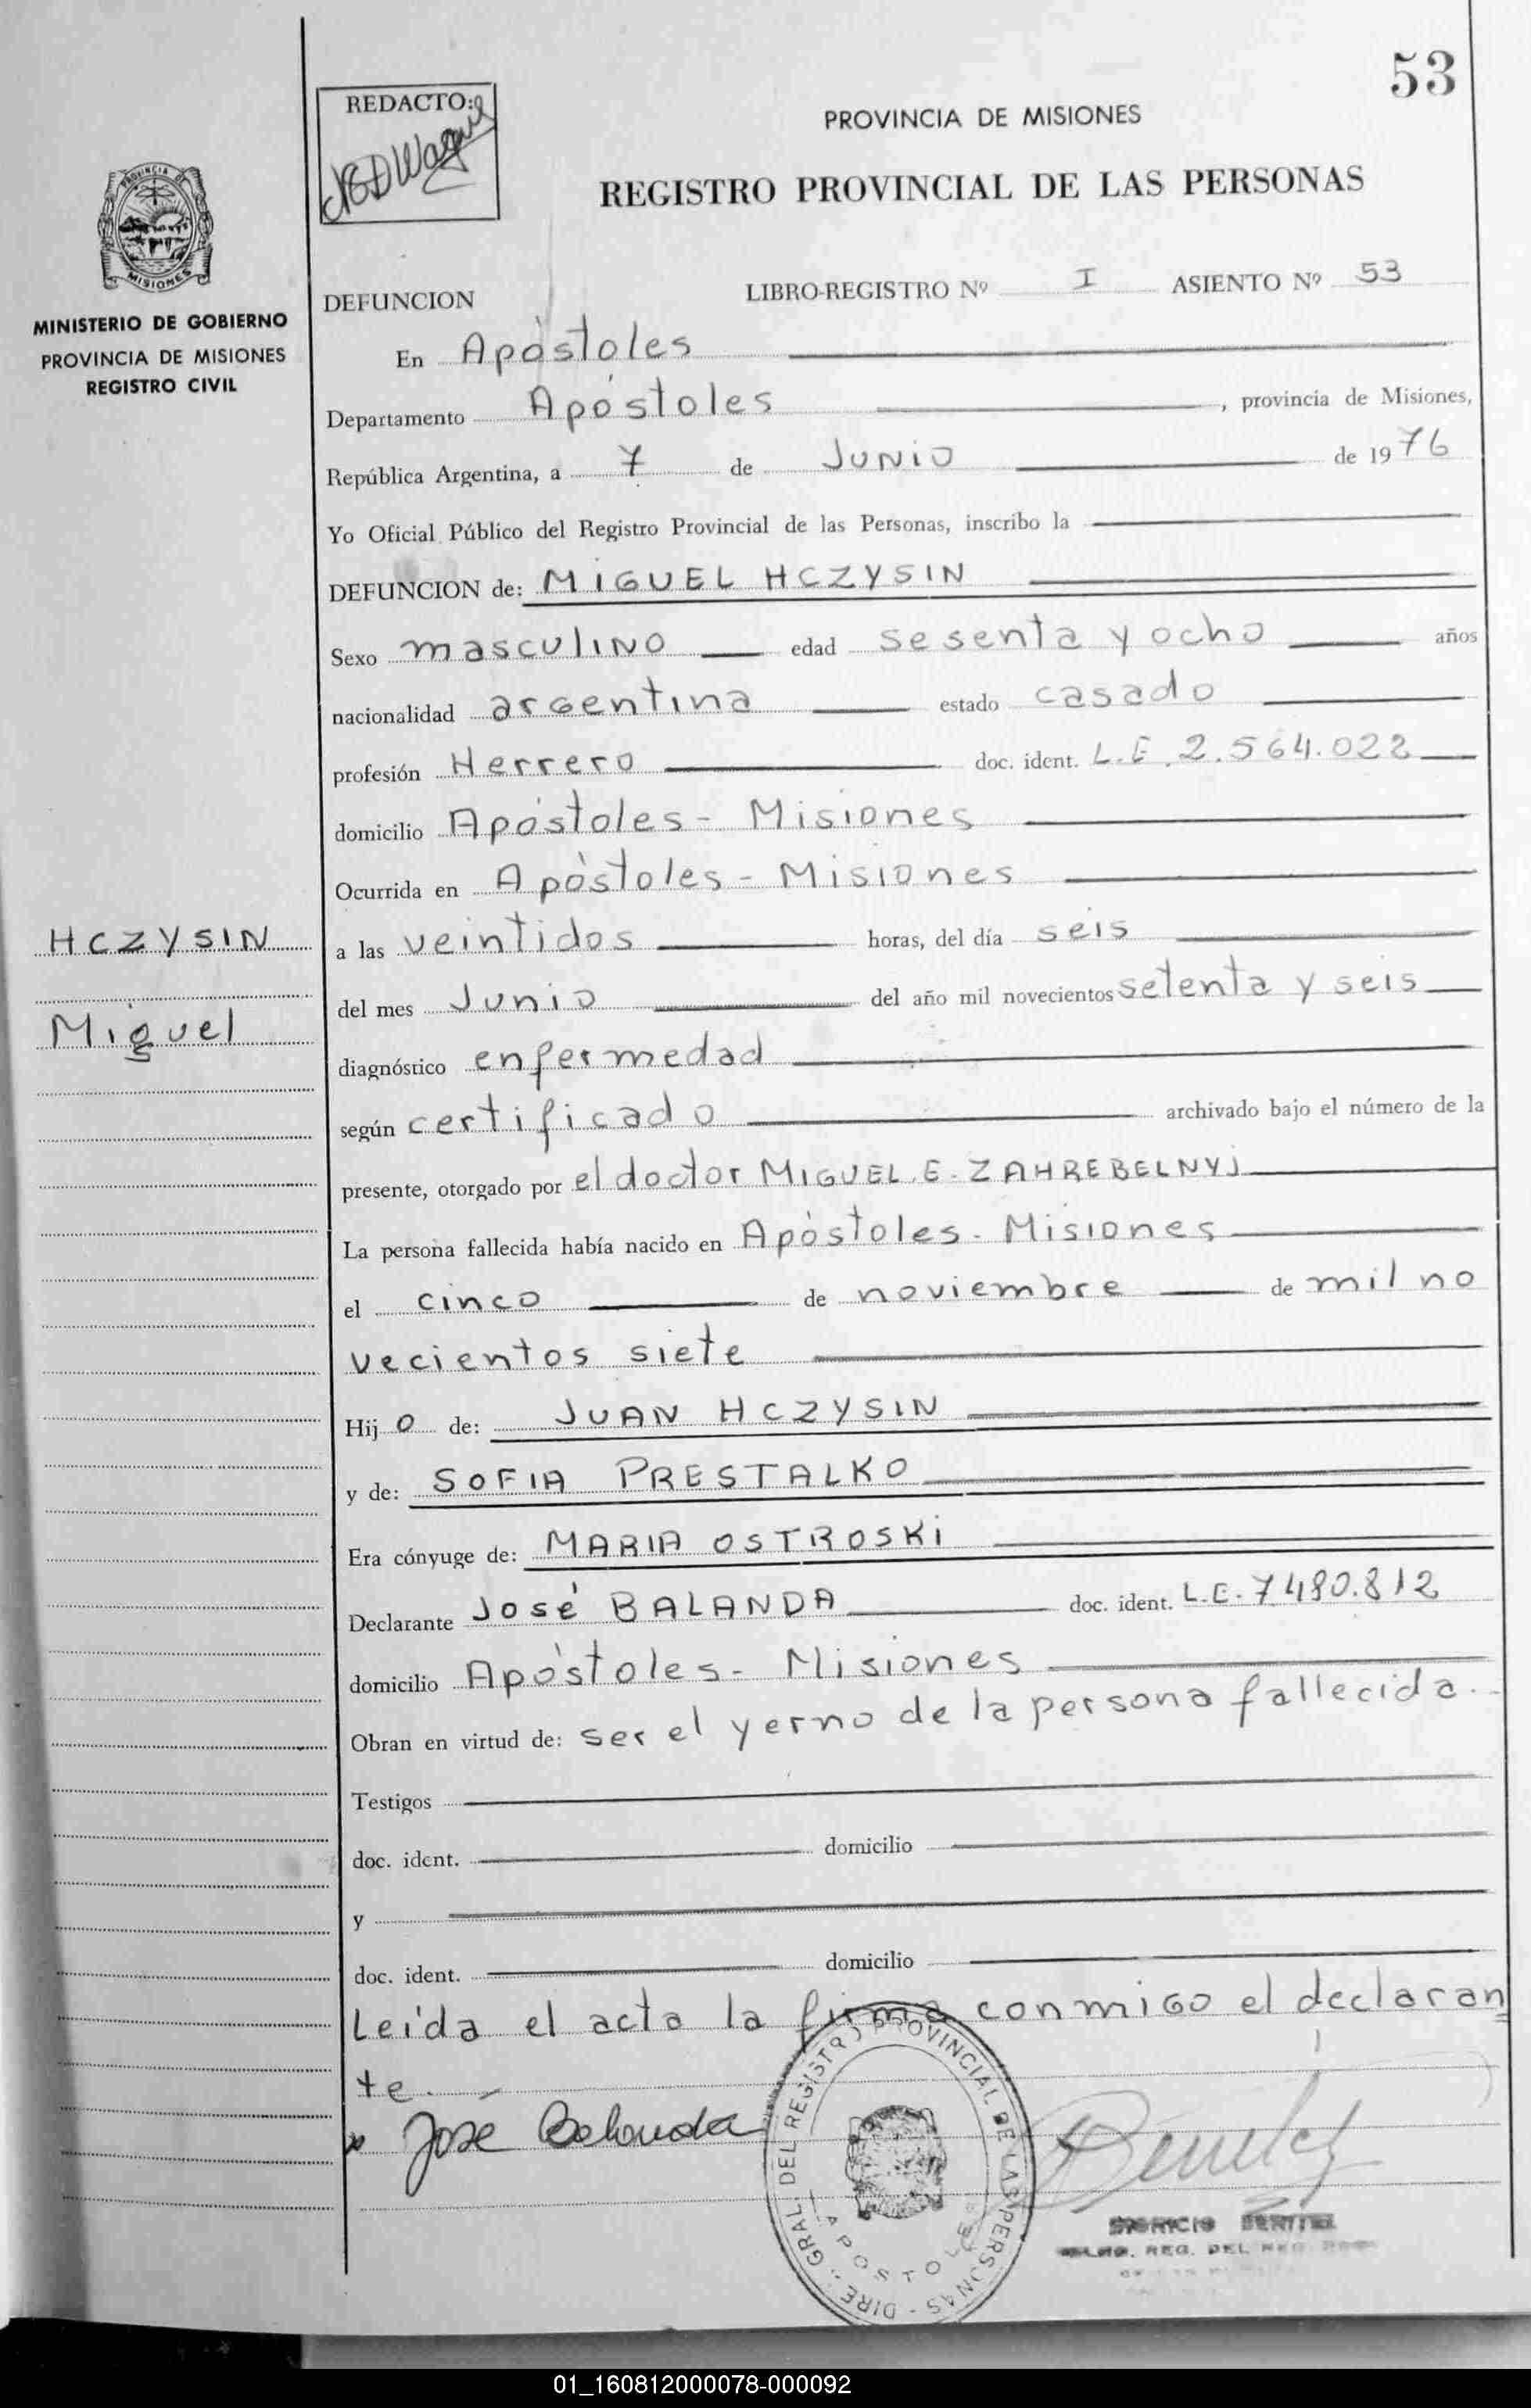 53
REDACTO:
PROVINCIA DE MISIONES
REGISTRO PROVINCIAL DE LAS PERSONAS
PROVINCIA DE
MISIONES
MINISTERIO DE GOBIERNO
PROVINCIA DE MISIONES
REGISTRO CIVIL
DEFUNCION LIBRO-REGISTRO Nº I ASIENTO Nº 53
En Apóstoles
Departamento Apóstoles, provincia de Misiones,
República Argentina, a 7 de Junio de 1976
Yo Oficial Público del Registro Provincial de las Personas, inscribo la
DEFUNCION de: MIGUEL HCZYSIN
Sexo masculino edad sesenta y ocho años
nacionalidad argentina estado casado
profesión Herrero doc. ident. L.E. 2.564.022
domicilio Apóstoles - Misiones
Ocurrida en Apóstoles - Misiones
HCZYSIN
Miguel
a las veintidos horas, del día seis
del mes Junio del año mil novecientos setenta y seis
diagnóstico enfermedad
según certificado archivado bajo el número de la
presente, otorgado por el doctor MIGUEL E. ZAHREBELNYJ
La persona fallecida había nacido en Apóstoles - Misiones
el cinco de noviembre de mil no
vecientos siete
Hijo de: JUAN HCZYSIN
y de: SOFIA PRESTALKO
Era cónyuge de: MARIA OSTROSKI
Declarante José BALANDA doc. ident. L.E. 7480.812
domicilio Apóstoles - Misiones
Obran en virtud de: ser el yerno de la persona fallecida.
Testigos
doc. ident. domicilio
y
doc. ident. domicilio
Leída el acta la firma conmigo el declaran
te.
José Balanda
DIRE. GRAL. DEL REGISTRO PROVINCIAL DE LAS PERSONAS
APOSTOLES
01_160812000078-000092